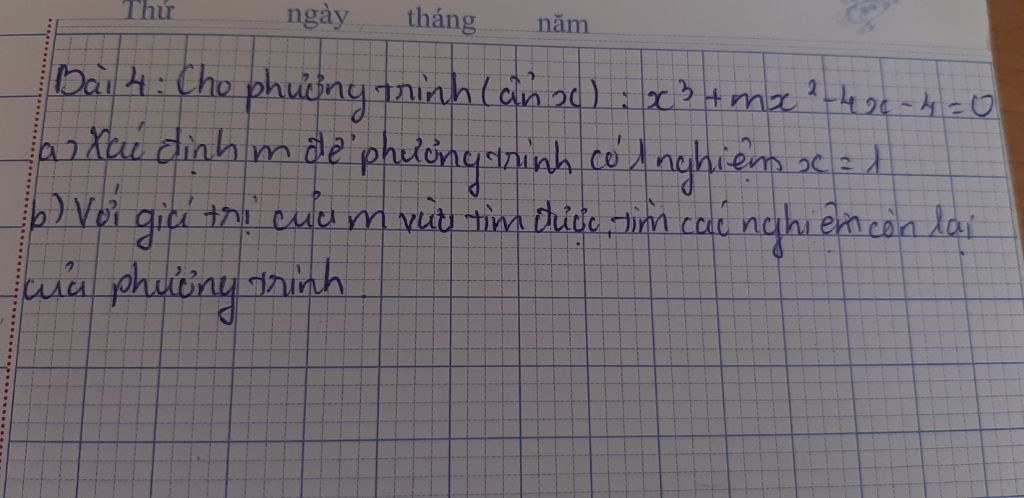 Thứ ngày tháng năm
Bài 4: Cho phương trình (ẩn x) : x³ + mx² - 4x - 4 = 0
a) Xác định m để phương trình có 1 nghiệm x = 1
b) Với giá trị của m vừa tìm được, tìm các nghiệm còn lại
của phương trình.